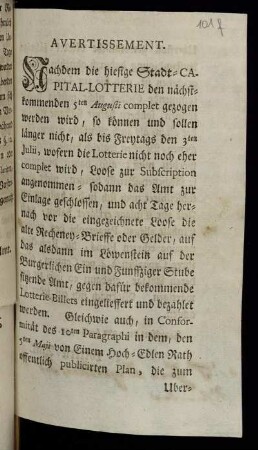 101 f
AVERTISSEMENT.
Nachdem die hiesige Stadt-CA-
PITAL-LOTTERIE den nächst-
kommenden 5ten Augusti complet gezogen
werden wird, so können und sollen
länger nicht, als bis Freytags den 3ten
Julii, wofern die Lotterie nicht noch eher
complet wird, Loose zur Subscription
angenommen- sodann das Amt zur
Einlage geschlossen, und acht Tage her-
nach vor die eingezeichnete Loose die
alte Recheney-Brieffe oder Gelder, auf
das alsdann im Löwenstein auf der
Burgerlichen Ein und Funffziger Stube
sitzende Amt, gegen dafür bekommende
Lotterie-Billets eingelieffert und bezahlet
werden. Gleichwie auch, in Confor-
mität des 10ten Paragraphi in dem, den
5ten Maji von Einem Hoch-Edlen Rath
offentlich publicirten Plan, die zum
Uber-